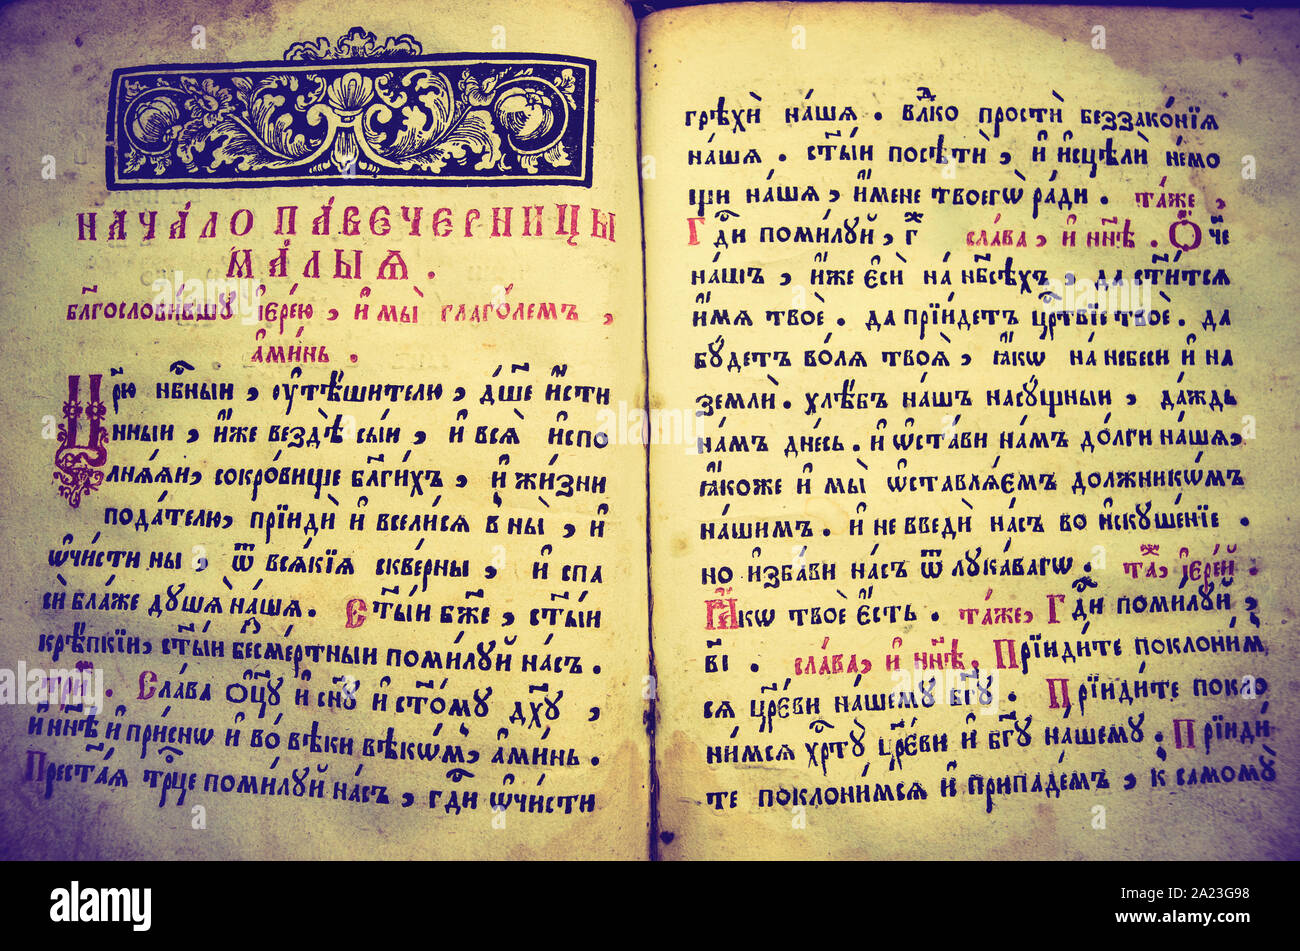 НАЧА́ЛО ПА́ВЕЧЕРНИЦЫ
МА́ЛЫѦ .
бл҃гослови́вшꙋ і҆ере́ю , и҆ мы̀ глаго́лемъ ,
а҆ми́нь .
Цр҃ю нб҃ный , ᲂу҆тѣ́шителю , дш҃е и҆́сти
нный , и҆́же вездѣ̀ сы́й , и҆ всѧ̀ и҆спо
лнѧ́ѧй , сокро́вище бл҃ги́хъ , и҆ жи́зни
пода́телю , прїидѝ и҆ всели́сѧ в ны̀ , и҆
ѡ҆чи́сти ны , ѿ всѧ́кїѧ скве́рны , и҆ спа
сѝ бла́же дꙋшѧ̀ на́шѧ . Ст҃ы́й бж҃е , ст҃ы́й
крѣ́пкїй , ст҃ы́й бесме́ртный поми́лꙋй на́съ .
три҆ . Сла́ва ѻ҆ц҃ꙋ̀ и҆ сн҃ꙋ и҆ ст҃о́мꙋ дх҃ꙋ ,
и҆ нн҃ѣ и҆ при́снѡ и҆ во́ вѣки вѣкѡ́мъ , а҆ми́нь .
Прест҃а́ѧ трⷪ҇це поми́лꙋй на́съ , гдⷭ҇и ѡ҆чи́сти
грѣхѝ на́шѧ . влⷣко простѝ беззако́нїѧ
на́шѧ . ст҃ы́й посѣтѝ , и҆ и҆сцѣлѝ не́мо
щи на́шѧ , и҆́мене твоегѡ̀ ра́ди . та́же ,
Гдⷭ҇и поми́лꙋй , г҃ сла́ва , и҆ нн҃ѣ . Ѻ҆́че
на́шъ , и҆́же є҆сѝ на́ нб҃сѣхъ , да ст҃и́тсѧ
и҆́мѧ твоѐ . да прїи́детъ црⷭ҇твїе твоѐ . да
бꙋ́детъ во́лѧ твоѧ̀ , ꙗ҆́кѡ на́ небеси и҆ на
землѝ . хлѣ́бъ на́шъ насꙋ́щный , да́ждь
на́мъ дне́сь . и҆ ѡ҆ста́ви на́мъ до́лги на́шѧ ,
ꙗ҆́коже и҆ мы̀ ѡ҆ставлѧ́ємъ должникѡ́мъ
на́шимъ . и҆ не введѝ на́съ во и҆скꙋше́нїе .
но и҆зба́ви на́съ ѿ лꙋка́вагѡ . таⷤ , і҆ере́й .
Ꙗ҆́кѡ твоѐ є҆́сть . та́же , Гдⷭ҇и поми́лꙋй ,
в҃і . сла́ва , и҆ нн҃ѣ . Прїиди́те поклони́м
сѧ цр҃е́ви на́шемꙋ бг҃ꙋ . Прїиди́те покло
ни́мсѧ хрⷭ҇тꙋ̀ цр҃е́ви и҆ бг҃ꙋ на́шемꙋ . Прїиди́
те поклони́мсѧ и҆ припаде́мъ , к самомꙋ̀
alamy
Image ID: 2A23G98
www.alamy.com